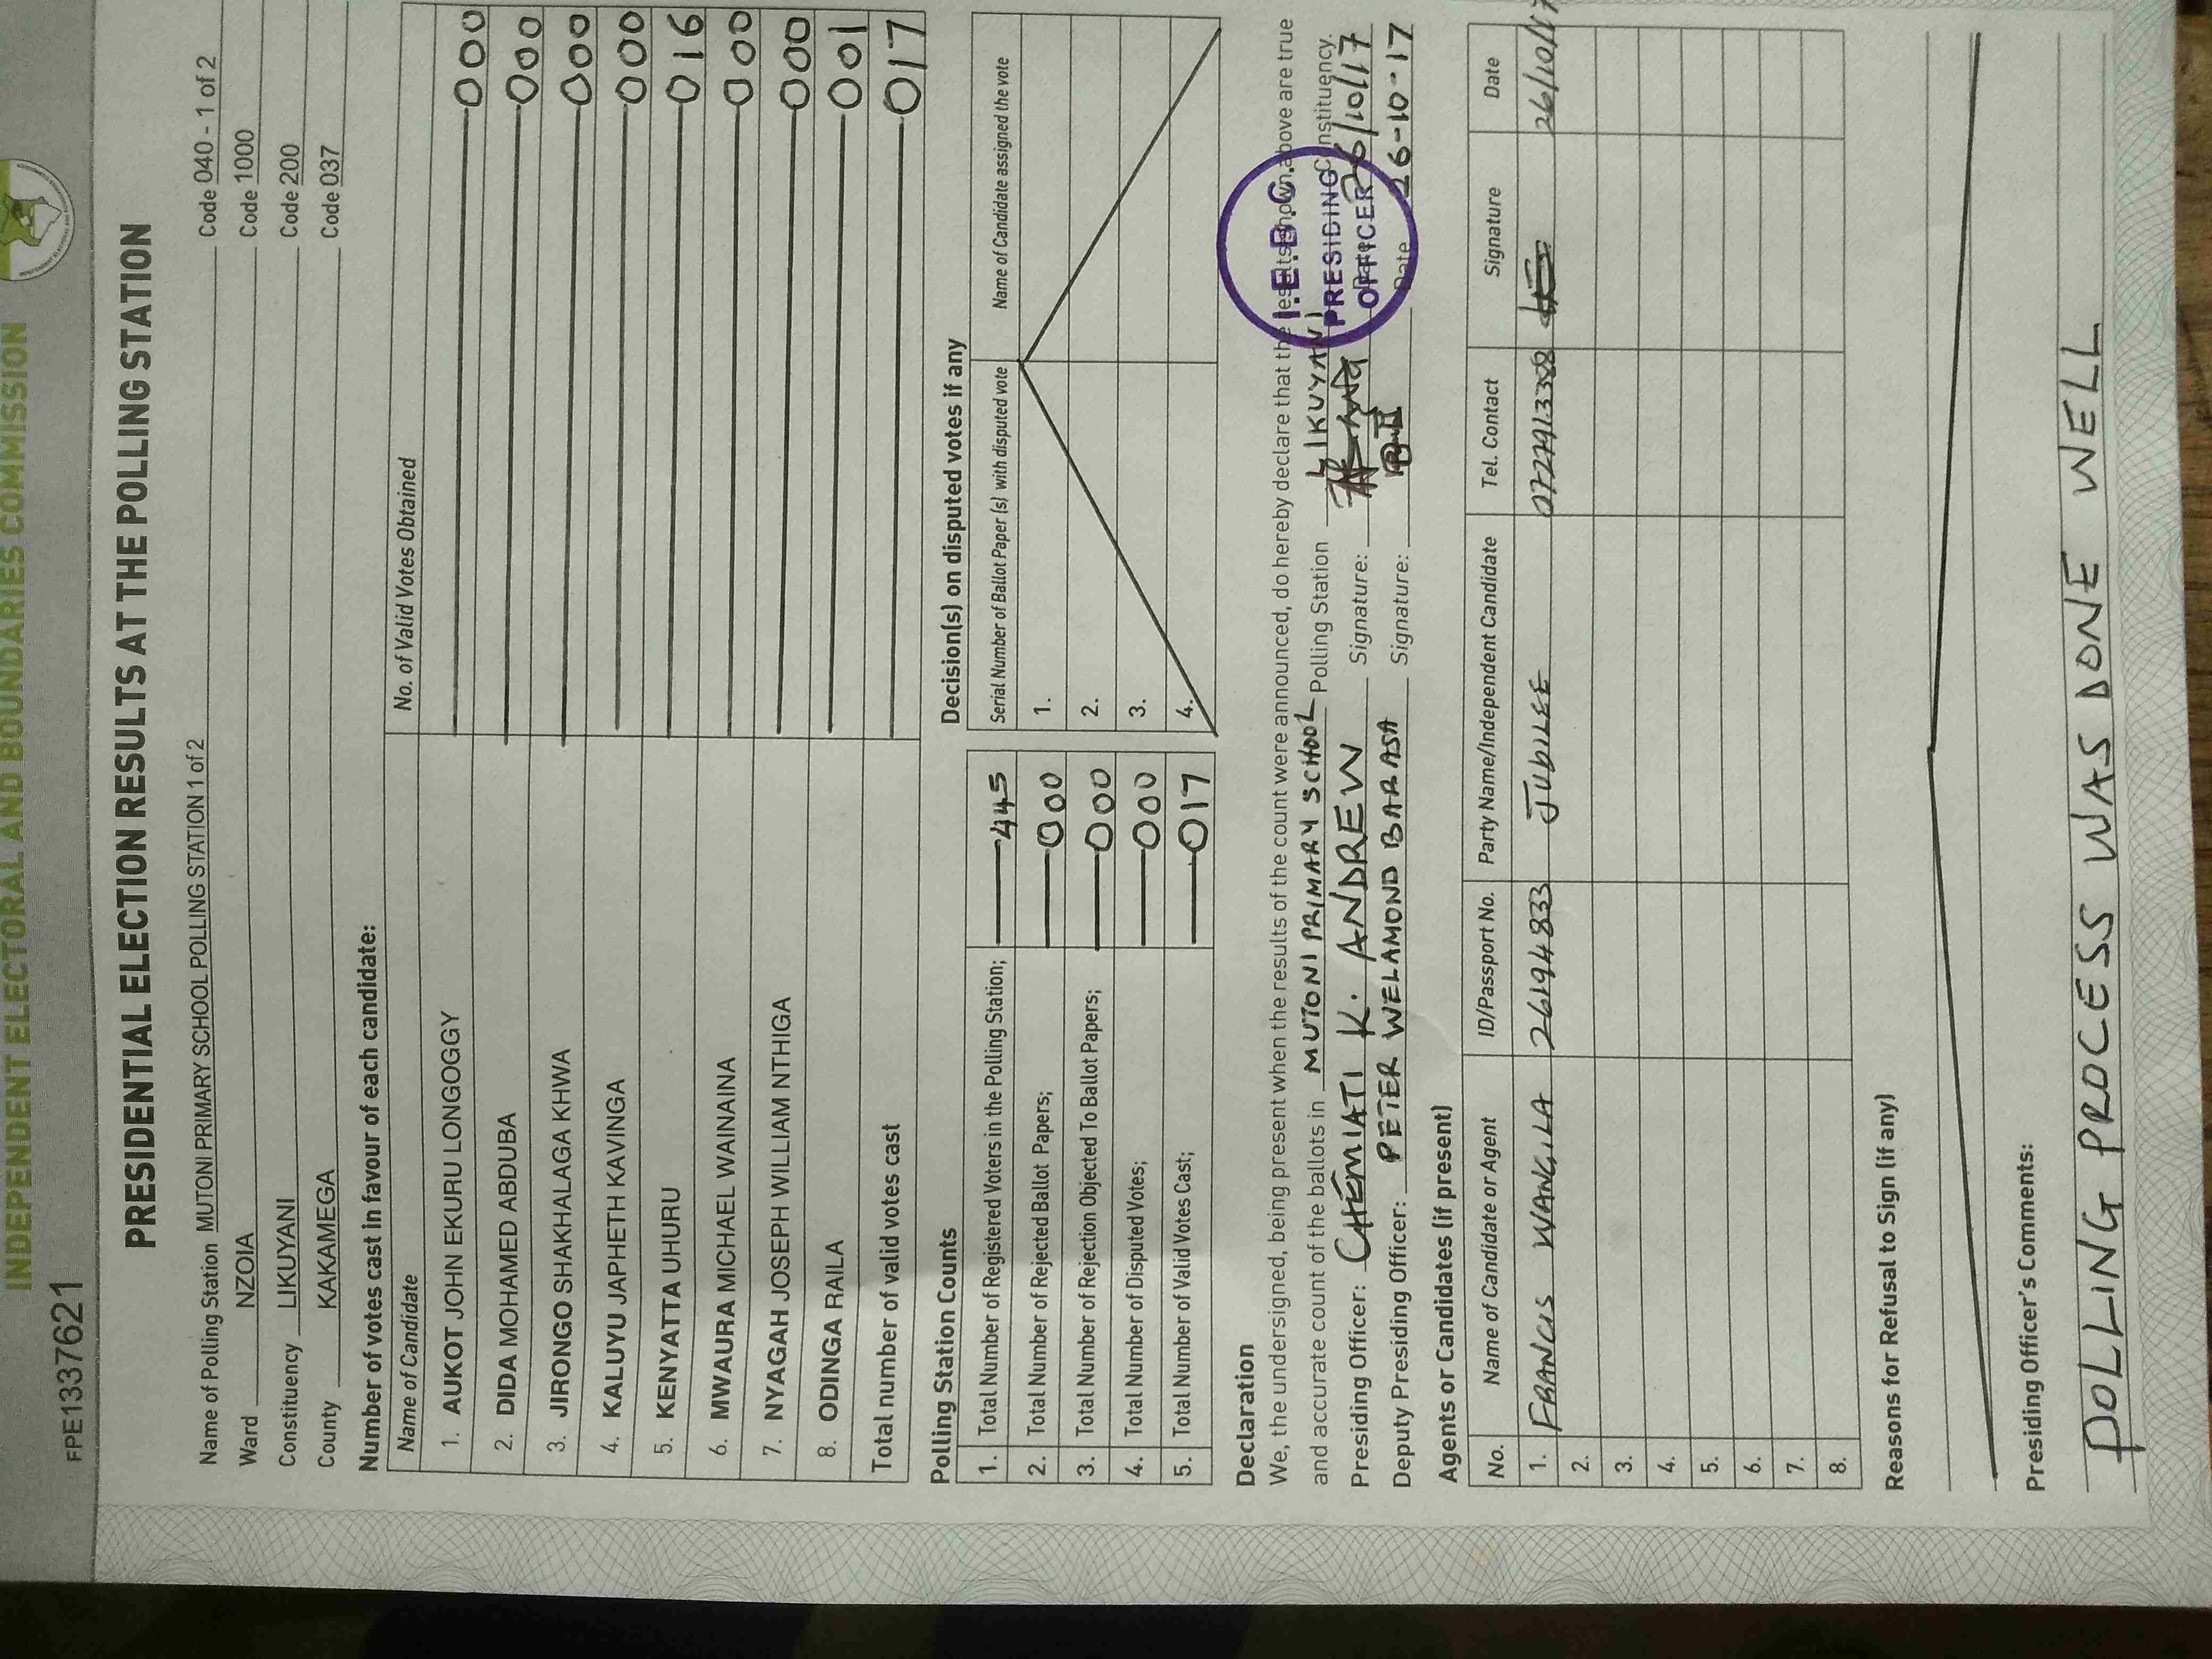 INDEPENDENT ELECTORAL AND BOUNDARIES COMMISSION
FPE1337621
PRESIDENTIAL ELECTION RESULTS AT THE POLLING STATION
Name of Polling Station MUTONI PRIMARY SCHOOL POLLING STATION 1 of 2 Code 040 - 1 of 2
Ward NZOIA Code 1000
Constituency LIKUYANI Code 200
County KAKAMEGA Code 037
Number of votes cast in favour of each candidate:
Name of Candidate No. of Valid Votes Obtained
1. AUKOT JOHN EKURU LONGOGGY 000
2. DIDA MOHAMED ABDUBA 000
3. JIRONGO SHAKHALAGA KHWA 000
4. KALUYU JAPHETH KAVINGA 000
5. KENYATTA UHURU 016
6. MWAURA MICHAEL WAINAINA 000
7. NYAGAH JOSEPH WILLIAM NTHIGA 000
8. ODINGA RAILA 001
Total number of valid votes cast 017
Polling Station Counts
1. Total Number of Registered Voters in the Polling Station; 445
2. Total Number of Rejected Ballot Papers; 000
3. Total Number of Rejection Objected To Ballot Papers; 000
4. Total Number of Disputed Votes; 000
5. Total Number of Valid Votes Cast; 017
Decision(s) on disputed votes if any
Serial Number of Ballot Paper (s) with disputed vote Name of Candidate assigned the vote
1.
2.
3.
4.
Declaration
We, the undersigned, being present when the results of the count were announced, do hereby declare that the results shown above are true
and accurate count of the ballots in MUTONI PRIMARY SCHOOL Polling Station LIKUYANI Constituency.
Presiding Officer: CHEMIATI K. ANDREW Signature: Date 26/10/17
Deputy Presiding Officer: PETER WELAMOND BARASA Signature: Date 26-10-17
I.E.B.C.
PRESIDING
OFFICER
Agents or Candidates (if present)
No. Name of Candidate or Agent ID/Passport No. Party Name/Independent Candidate Tel. Contact Signature Date
1. FRANCIS WANGILA 26194833 JUBILEE 0727913358 26/10/17
2.
3.
4.
5.
6.
7.
8.
Reasons for Refusal to Sign (if any)
Presiding Officer's Comments:
POLLING PROCESS WAS DONE WELL